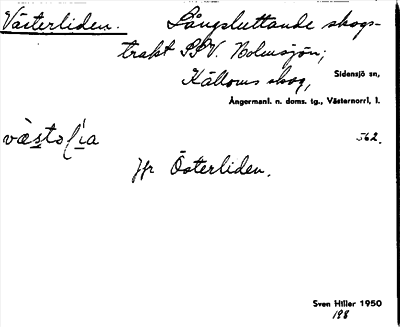 Västerliden. Långsluttande skogs-
trakt SSV. Bolmsjön;
Källoms skog, Sidensjö sn,
Ångermanl. n. doms. tg., Västernorrl, l.
562.
Jfr Österliden.
Sven Hiller 1950
198